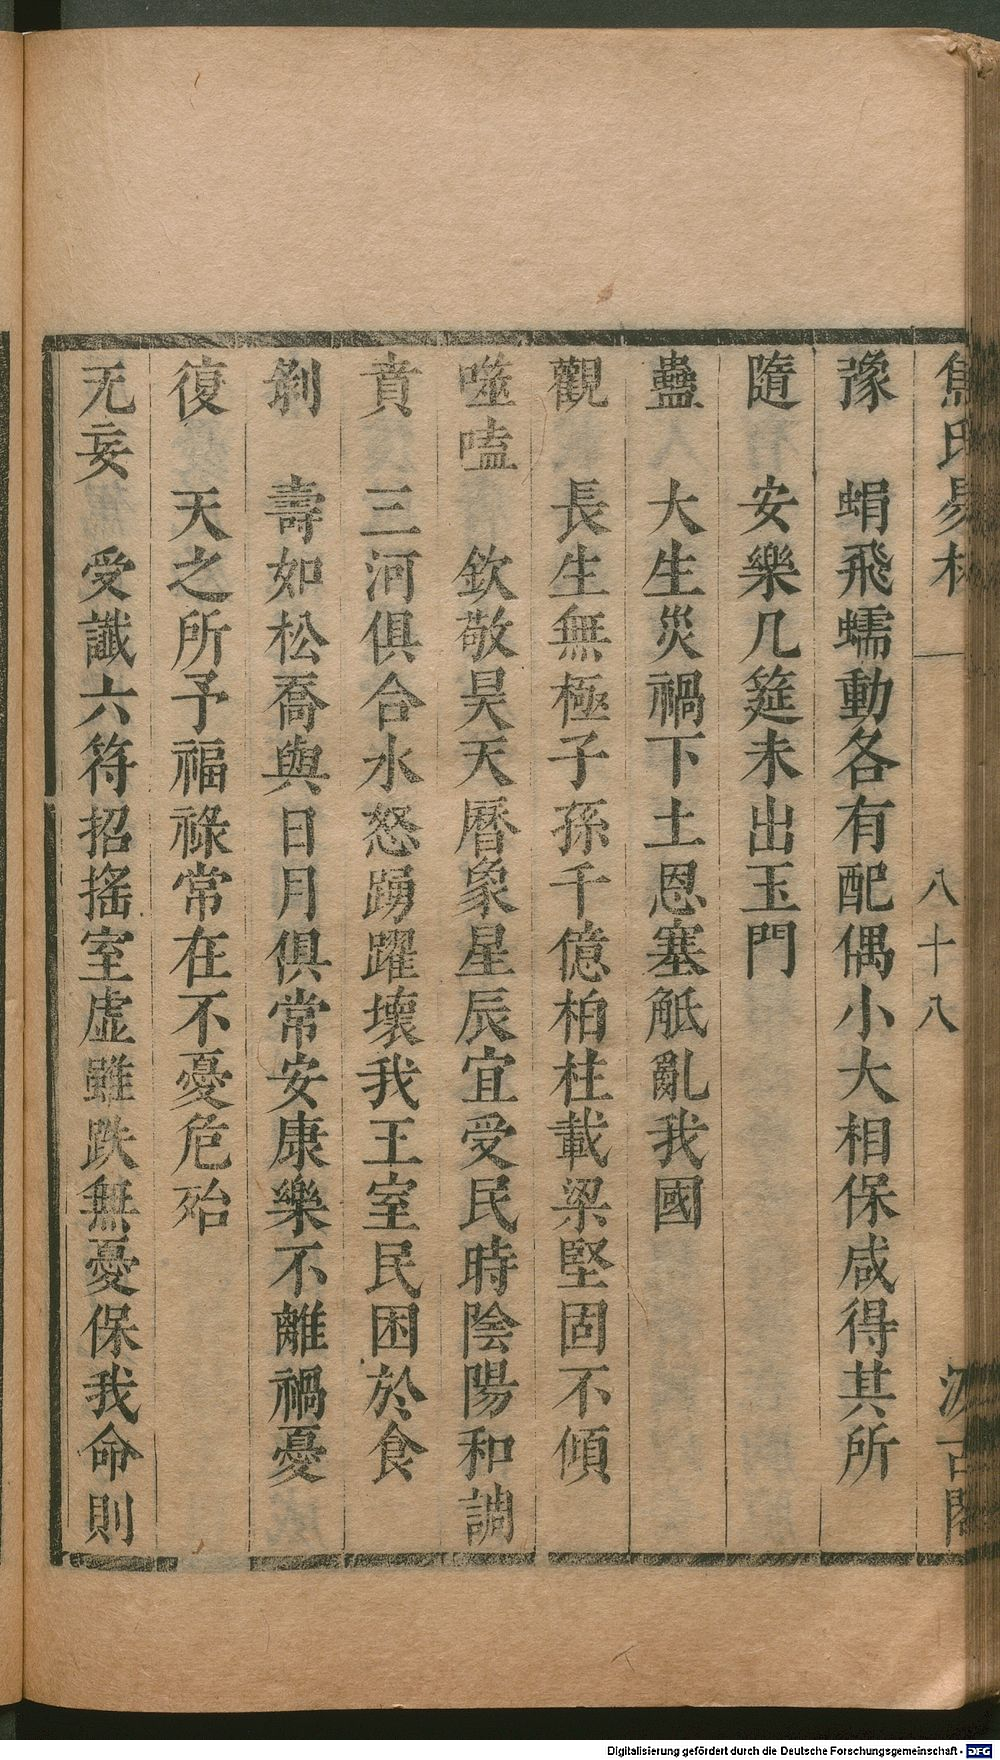 焦氏易林 八十八 汲古閣
豫 蜎飛蠕動各有配偶小大相保咸得其所
隨 安樂几筵未出玉門
蠱 大生災禍下土恩塞觝亂我國
觀 長生無極子孫千億柏柱載梁堅固不傾
噬嗑 欽敬昊天曆象星辰宜受民時陰陽和調
賁 三河俱合水怒踴躍壞我王室民困於食
剝 壽如松喬與日月俱常安康樂不離禍憂
復 天之所予福祿常在不憂危殆
无妄 受讖六符招搖室虛雖跌無憂保我命則
Digitalisierung gefördert durch die Deutsche Forschungsgemeinschaft - DFG